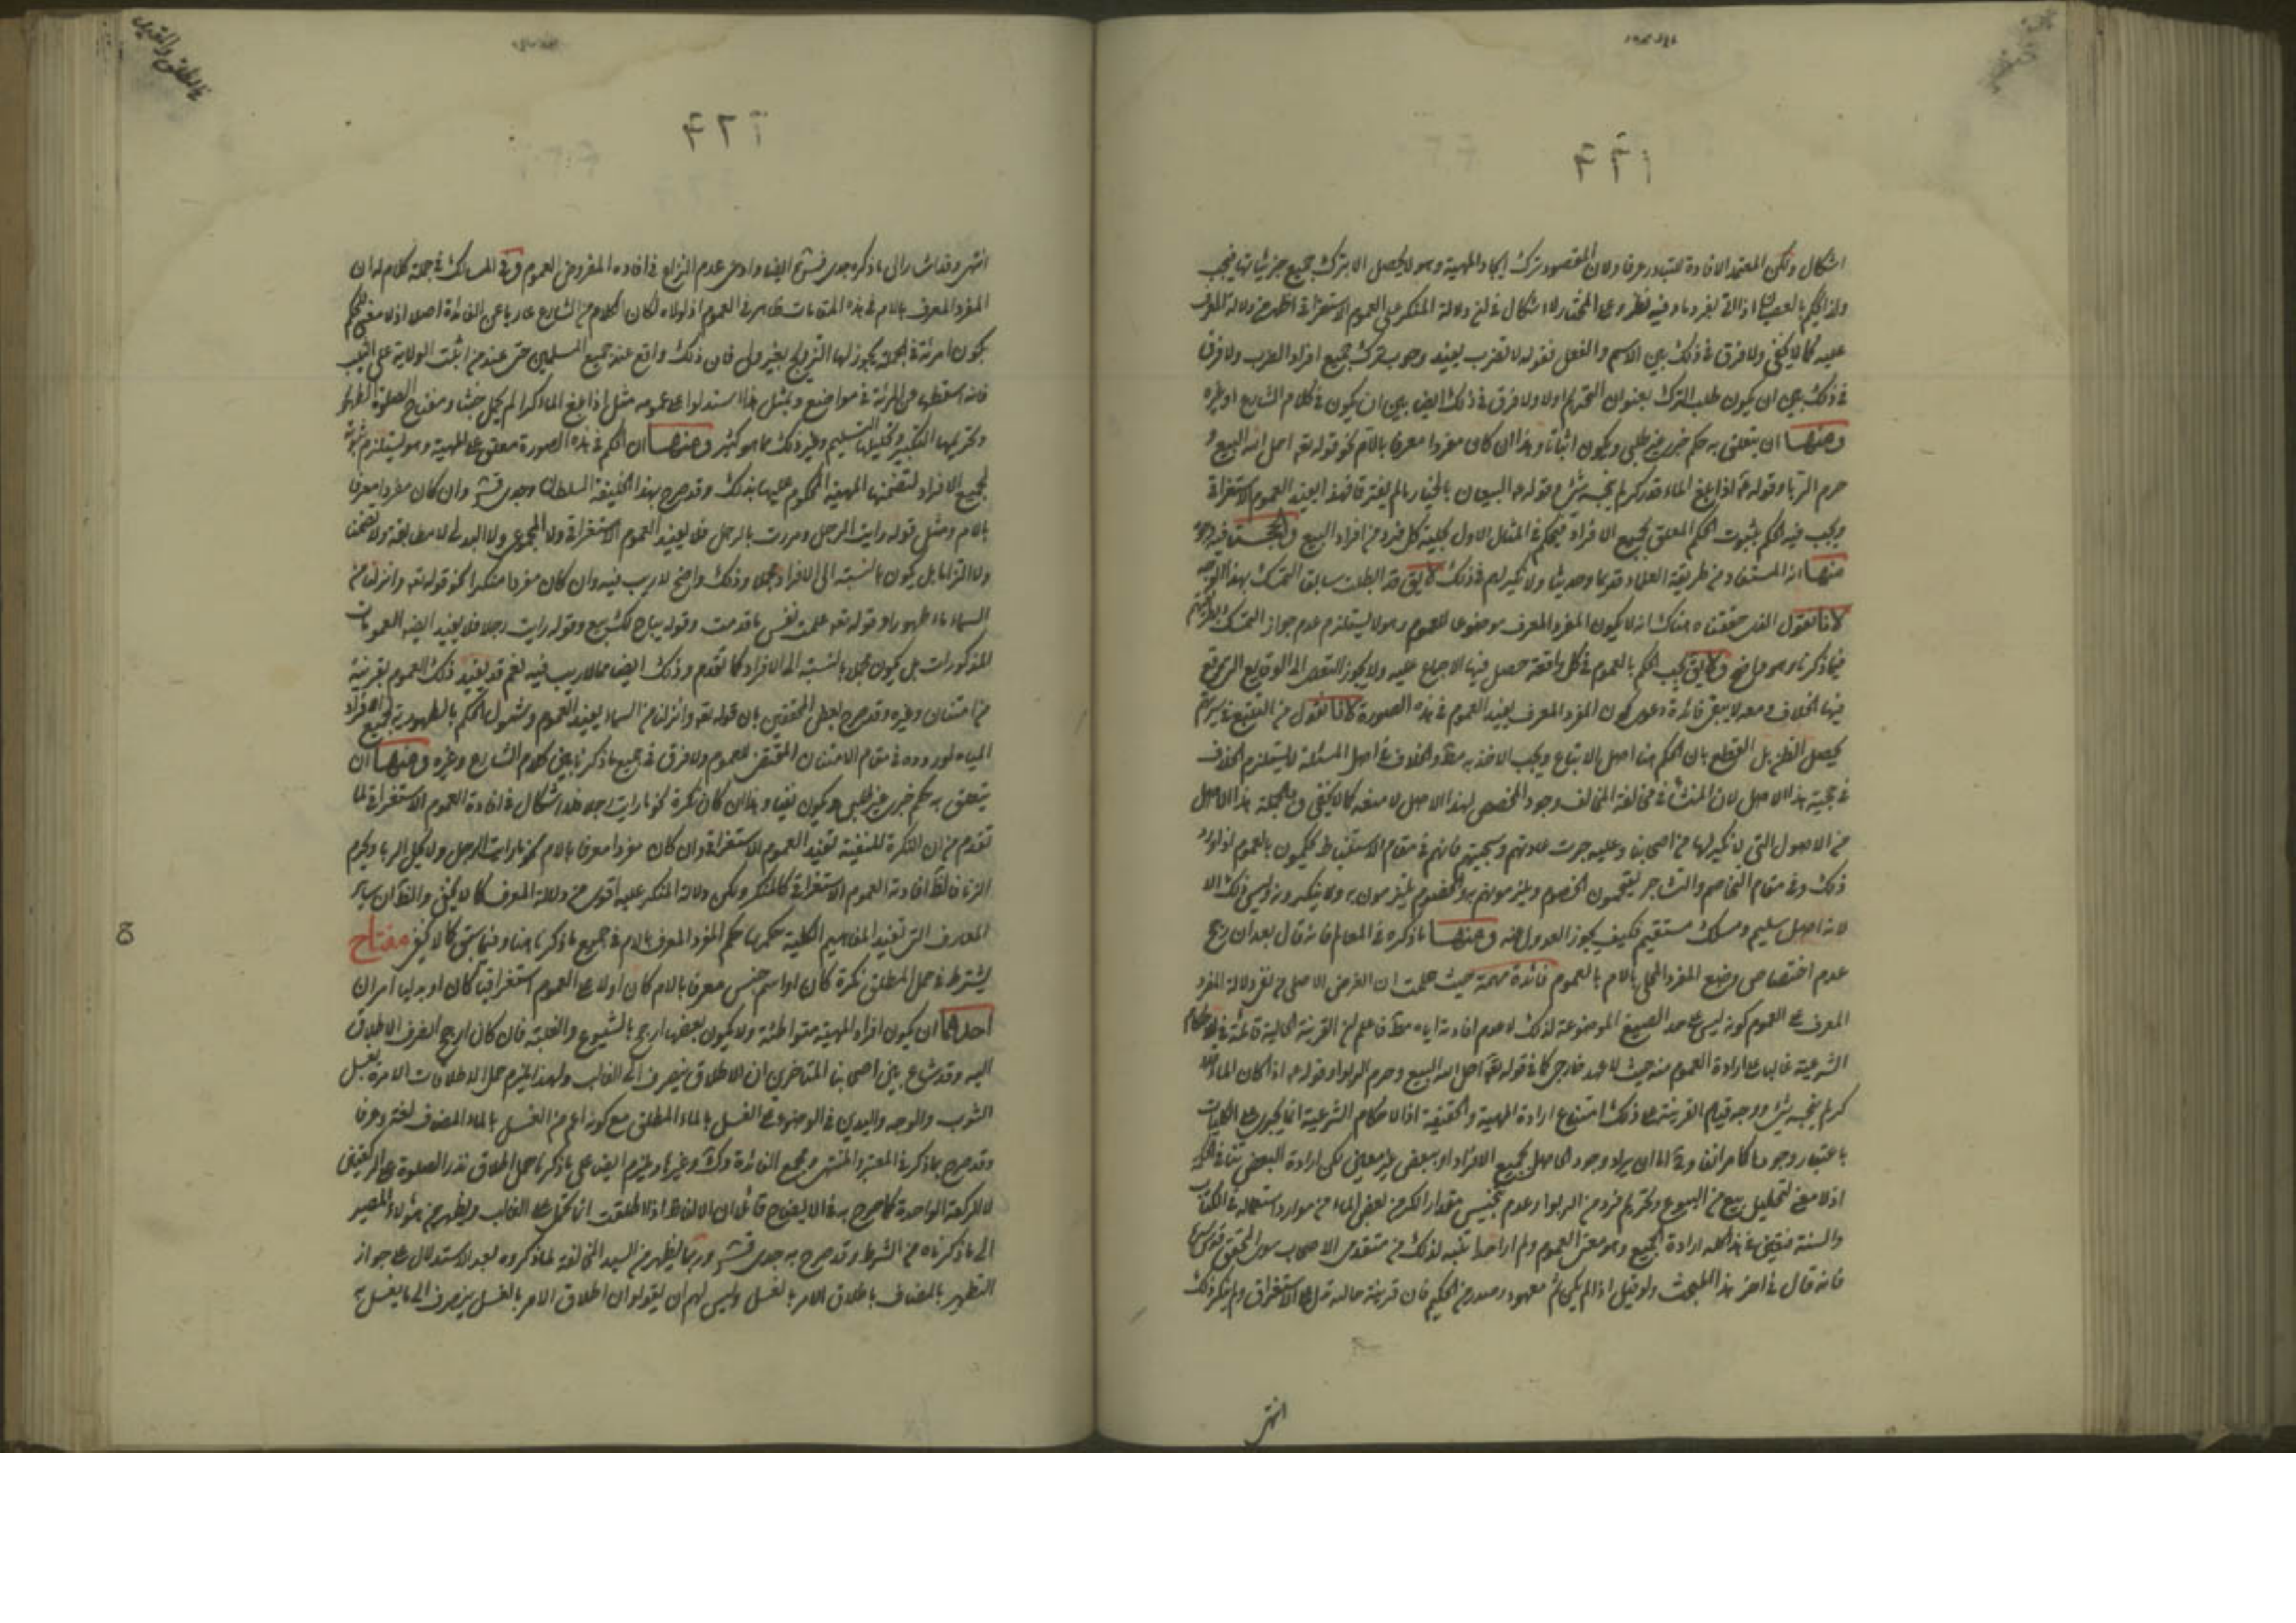 اشكال ولكن المعتمد الافادة للتبادر عرفا ولان المقصود ترك ايجاد المهية وهو لا يحصل الا بترك جميع جزئياتها فيجب
عليه كما لا يخفى ولا فرق في ذلك بين الاسم والفعل فقوله لا تضرب يفيد وجوب ترك جميع افراد الضرب ولا فرق
في ذلك بين ان يكون طلب الترك بعنوان التحريم اولا ولا فرق في ذلك ايضا بين ان يكون في كلام الشارع او غيره
ومنها ان يتعلق به حكم خبري غير طلبي ويكون اثباتا وهذا ان كان مفردا معرفا باللام نحو قوله تعه احل الله البيع و
حرم الربا وقوله ع اذا بلغ الماء قدر كر لم ينجسه شئ وقوله ع البيعان بالخيار ما لم يفترقا فهذا يفيد العموم الاستغراقى
ويجب فيه الحكم بثبوت الحكم المعلق لجميع الافراد فيحكم في المثال الاول بحلية كل فرد من افراد البيع
منها انه المستفاد من طريقة العلماء قديما وحديثا ولا نكير لهم في ذلك لا يق قد ابطلت سابق التمسك بهذا الوجه
لانا نقول الذى حققناه هناك انه لا يكون المفرد المعرف موضوعا للعموم وهو لا يستلزم عدم جواز التمسك
فيما ذكرناه وهو واضح ولا يق يجب الحكم بالعموم في كل واقعة حصل فيها الاجماع عليه ولا يجوز التعدى الى الوقايع التى وقع
فيها الخلاف ومعه لا يبقى فائدة دعوى كون المفرد المعرف يفيد العموم في هذه الصورة لانا نقول من التتبع في سيرتهم
يحصل الظن بل القطع بان الحكم هنا اصل الاتباع ويجب الاخذ به مط والخلاف في اصل المسئلة لا يستلزم الخلاف
في حجية هذا الاصل لان المنشأ في مخالفة المخالف وجود المخصص لهذا الاصل لا منعه كما لا يخفى وبالجملة هذا الاصل
من الاصول التى لا نكير لها من اصحابنا وعليه جرت عادتهم وسجيتهم فانهم في مقام الاستنباط يحكمون بالعموم
ذلك وفي مقام التخاصم والتشاجر يفحمون الخصوم ويلزمونهم به والخصوم يلتزمون به ولا ينكرونه وليس ذلك الا
لانه اصل سليم ومسلك مستقيم فكيف يجوز العدول عنه ومنها ما ذكره في المعالم فانه قال بعد ان رجح
عدم اختصاص وضع المفرد المحلى باللام بالعموم فائدة مهمة حيث علمت ان الغرض الاصلى من نفى دلالة المفرد
المعرف على العموم كونه ليس على حد الصيغ الموضوعة لذلك لا عدم افادته اياه مط فاعلم ان القرينة الحالية قائمة في الاحكام
الشرعية غالبا على ارادة العموم منه حيث لا عهد خارجى كما في قوله تعه احل الله البيع وحرم الربوا وقوله ع اذا كان الماء
كر لم ينجسه شئ ووجه قيام القرينة على ذلك امتناع ارادة المهية والحقيقة اذ الاحكام الشرعية انما يجرى على الكليات
باعتبار وجودها كما مر انفا وح اما ان يراد وجود الحاصل لجميع الافراد او ببعض غير معين لكن ارادة البعض تنافى الحكمة
اذ لا معنى لتحليل بيع من البيوع وتحريم فرد من الربوا وعدم تنجيس مقدار الكر من بعض الماء من موارد استعماله في الكتاب
والسنة فتعين في هذا كله ارادة الجميع وهو معنى العموم ولم ار احدا تنبه لذلك من متقدمى الاصحاب سوى المحقق
فانه قال في اخر هذا المبحث ولو قيل اذا لم يكن ثم معهود وصدر من الحكيم فان قرينة حاله تدل على الاستغراق ولم ينكر ذلك
انتهى
انتهى وقد اشار الى ما ذكره جدى قدس سره ايضا وادعى عدم النزاع في افادة المفرد العموم وفي المسالك في جملة كلام له ان
المفرد المعرف باللام في هذه المقامات ظاهر في العموم اذ لولاه لكان الكلام من الشارع عاريا عن الفائدة اصلا اذ لا معنى للحكم
بكون امرئة في الجملة يجوز لها التزويج بغير ولى فان ذلك واقع عند جميع المسلمين حتى عند من اثبت الولاية على الثيب
فانه اسقطها عن المرئة في مواضع وبمثل هذا استدلوا على عمومه مثل اذا بلغ الماء كرا لم يحمل خبثا ومفتاح الصلوة الطهور
وتحريمها التكبير وتحليلها التسليم وغير ذلك مما هو كثير ومنها ان الحكم في هذه الصورة معلق على المهية وهو يستلزم ثبوته
لجميع الافراد لتضمنها المهية المحكوم عليها بذلك وقد صرح بهذا الخليفة السلطان وجدى قدس سره وان كان مفردا معرفا
باللام ومثل قوله رايت الرجل ومررت بالرجل فلا يفيد العموم الاستغراقى ولا المجموعى ولا البدلى لا مطابقة ولا تضمنا
ولا التزاما بل يكون بالنسبة الى الافراد مجملا وذلك واضح لا ريب فيه وان كان مفردا منكرا نحو قوله تعه وانزلنا من
السماء ماء طهورا وقوله تعه علمت نفس ما قدمت وقوله يباح لك بيع وقوله رايت رجلا فلا يفيد ايضا العمومات
المذكورات بل يكون مجملا بالنسبة الى الافراد كما تقدم وذلك ايضا مما لا ريب فيه نعم قد يفيد ذلك العموم بقرينة
من امتنان وغيره وقد صرح بعض المحققين بان قوله تعه وانزلنا من السماء يفيد العموم وشمول الحكم بالطهورية لجميع افراد
المياه لوروده في مقام الامتنان المقتضى للعموم ولا فرق في جميع ما ذكرنا بين كلام الشارع وغيره ومنها ان
يتعلق به حكم خبرى غير طلبى ويكون نفيا وهذا ان كان نكرة نحو ما رايت رجلا فلا اشكال في افادة العموم الاستغراقى لما
تقدم من ان النكرة المنفية تفيد العموم الاستغراقى وان كان مفردا معرفا باللام نحو ما رايت الرجل ولا يحل الربا ويحرم
الزنا فالظ افادته العموم الاستغراقى كالمنكر ولكن دلالة المنكر عليه اقوى من دلالة المعرف كما لا يخفى والظ ان ساير
المعارف التى تفيد المفاهيم الكلية حكمها حكم المفرد المعرف باللام في جميع ما ذكرنا هنا وفيما سبق كما لا يخفى مفتاح
يشترط في حمل المطلق نكرة كان او اسم جنس معرفا باللام كان اولا على العموم استغراقيا كان او بدليا امران
احدهما ان يكون افراد المهية متواطئة ولا يكون بعضها ارجح بالشيوع والغلبة فان كان ارجح انصرف الاطلاق
اليه وقد شاع بين اصحابنا المتاخرين ان الاطلاق ينصرف الى الغالب ولهذا يلزم حمل الاطلاقات الامرة بغسل
الثوب والوجه واليدين في الوضوء على الغسل بالماء المطلق مع كونه اعم من الغسل بالماء المضاف لغة وعرفا
وقد صرح بما ذكر في المعتبر والمنتهى ومجمع الفائدة وك وغيرها ويلزم ايضا على ما ذكرنا حمل اطلاق نذر الصلوة على الركعتين
لا للركعة الواحدة كما صرح به في الايضاح قائلا ان الالفاظ اذا اطلقت انما تحمل على الغالب ويظهر من هؤلاء المصير
الى ما ذكرناه من الشرط وقد صرح به جدى قدس سره وربما يظهر من السيد المخالفة لما ذكروه لجهة الاستدلال على جواز
التطهير بالمضاف باطلاق الامر بالغسل وليس لهم ان يقولوا ان اطلاق الامر بالغسل ينصرف الى ما يغسل به